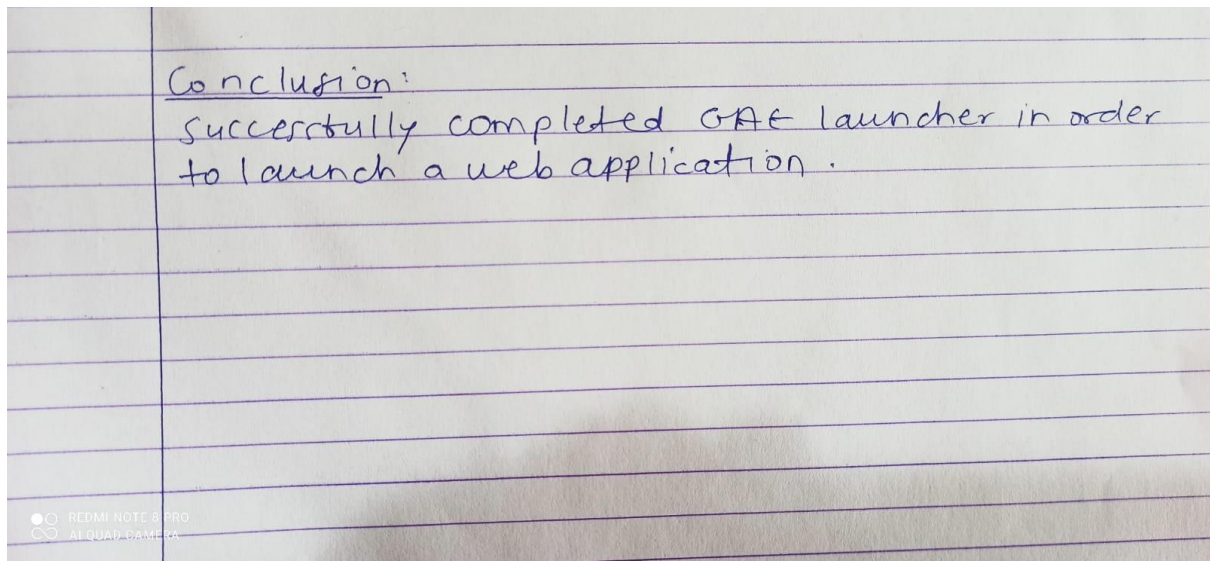 Conclusion:
Successfully completed GAE launcher in order
to launch a web application.
REDMI NOTE 8 PRO
AI QUAD CAMERA